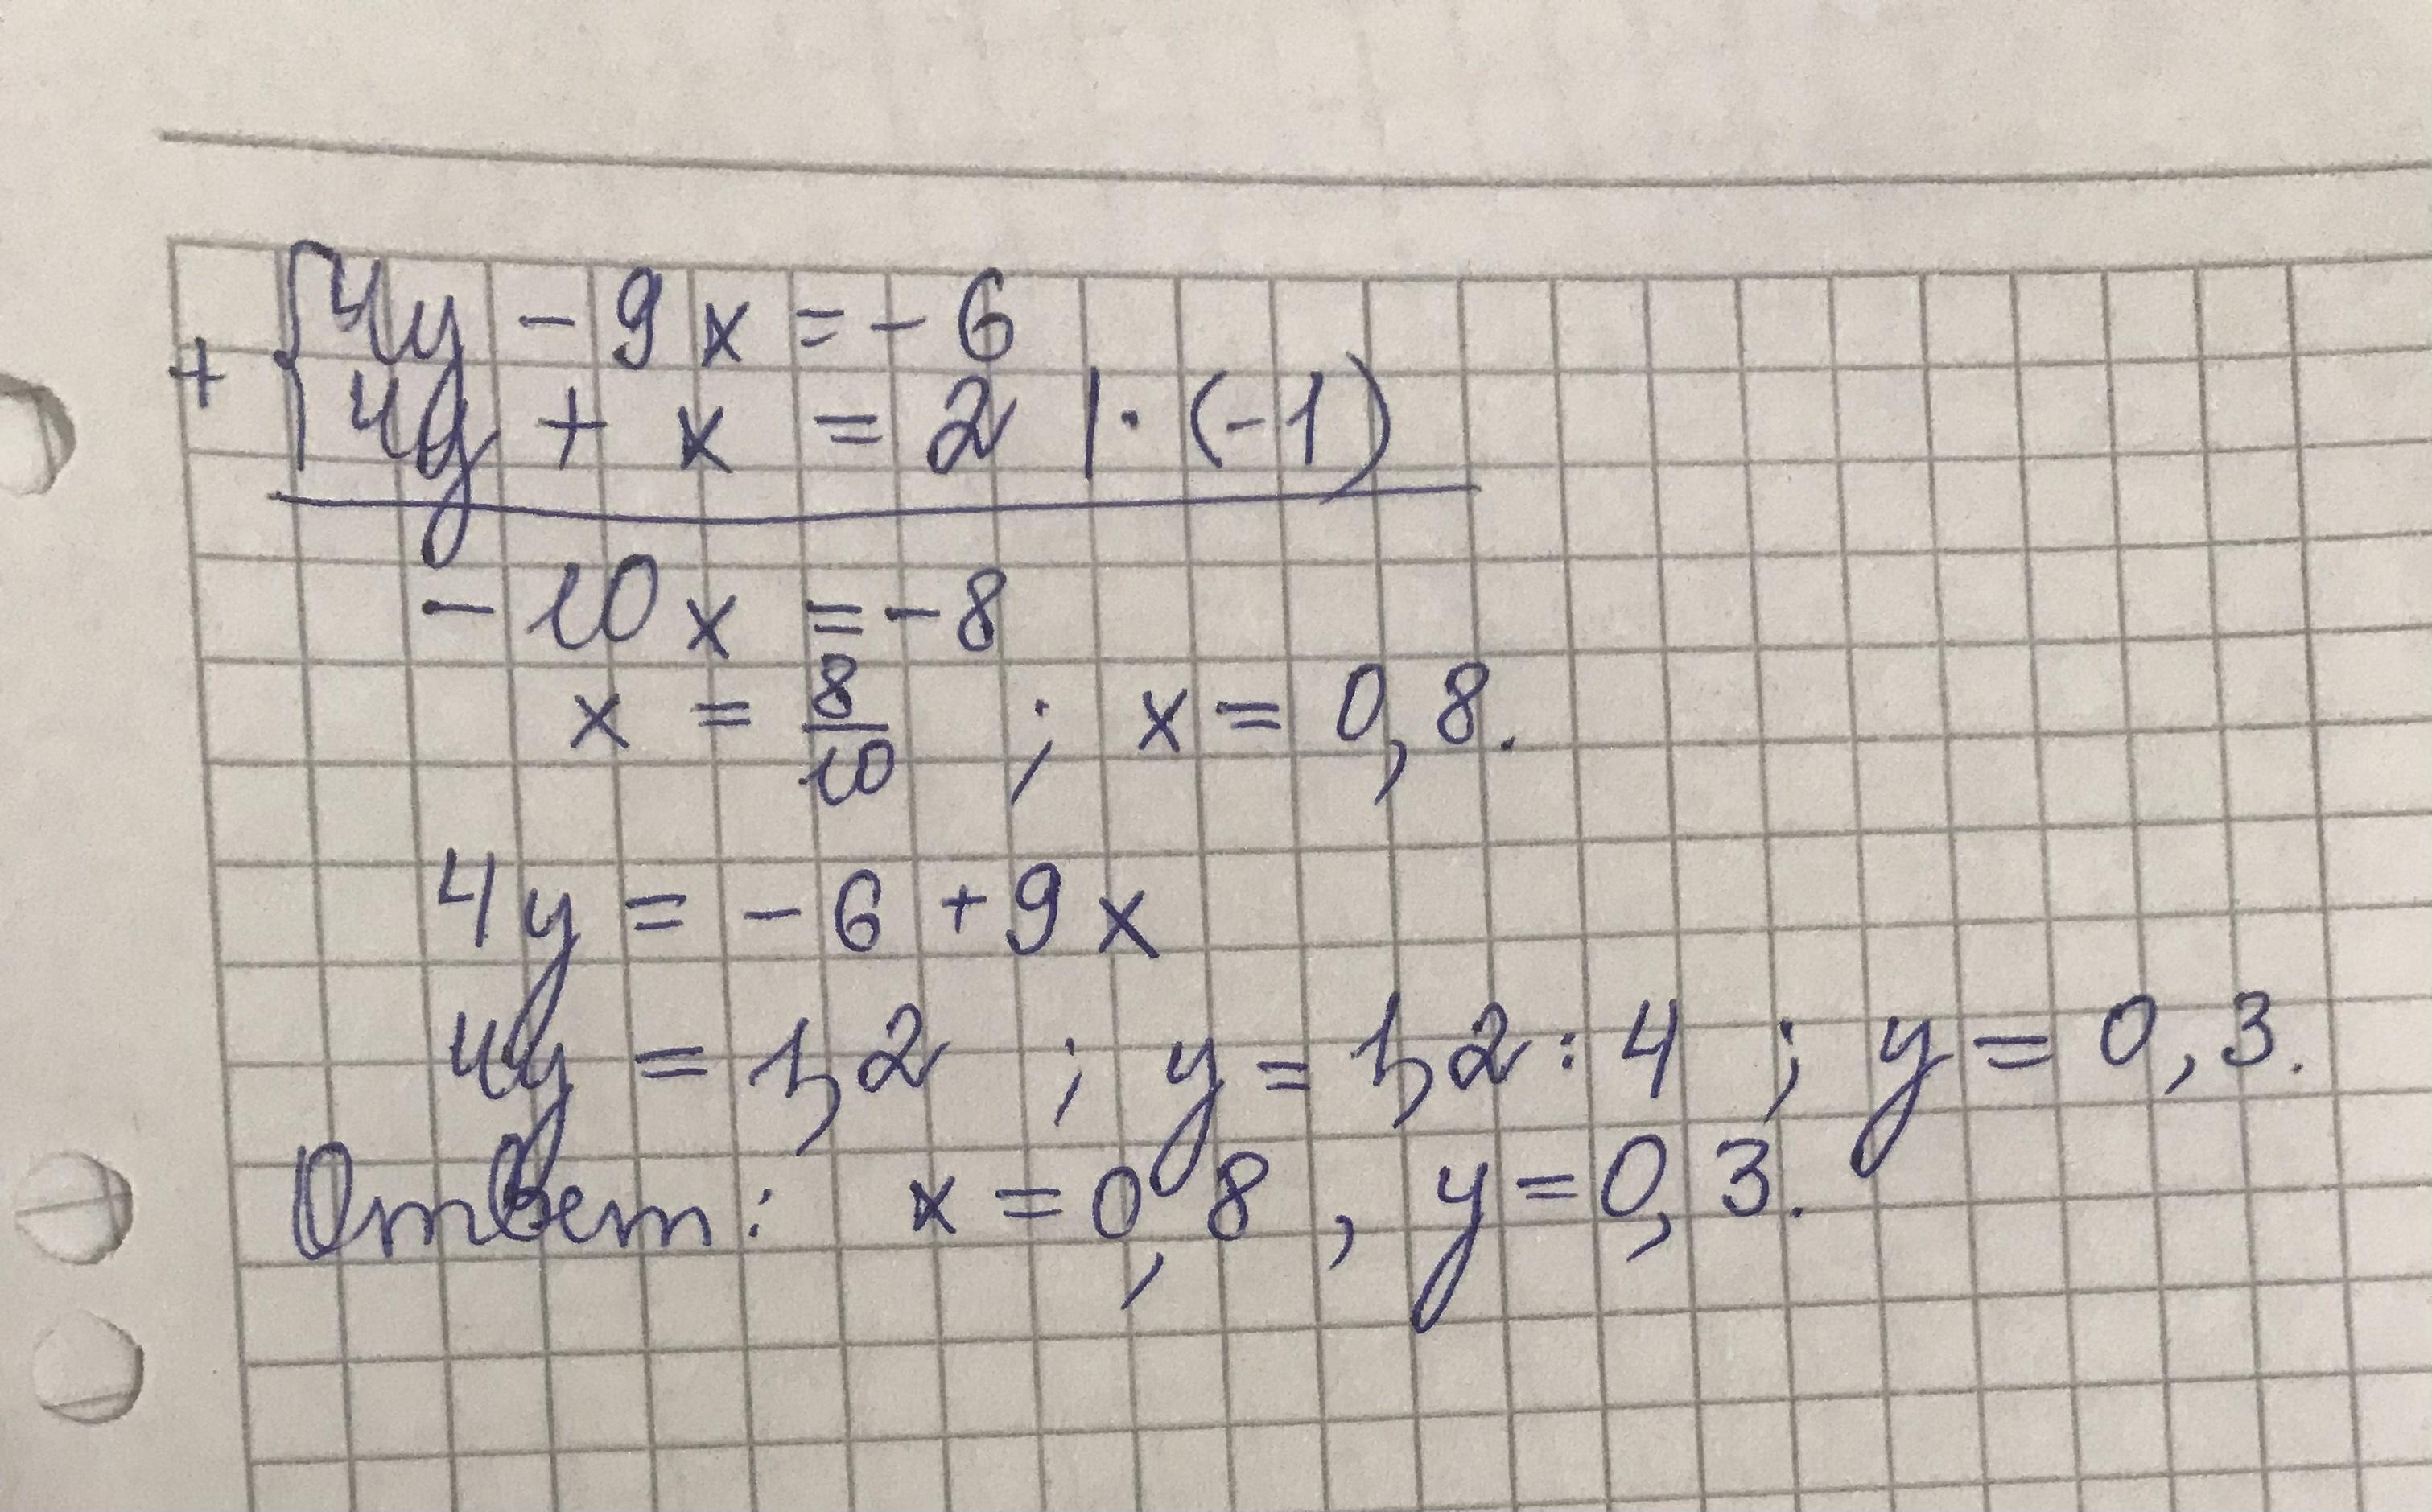 + { 4y - 9x = - 6
4y + x = 2 | · (-1)
- 10x = - 8
x = 8/10 ; x = 0,8.
4y = - 6 + 9x
4y = 1,2 ; y = 1,2 : 4 ; y = 0,3.
Ответ: x = 0,8 , y = 0,3.